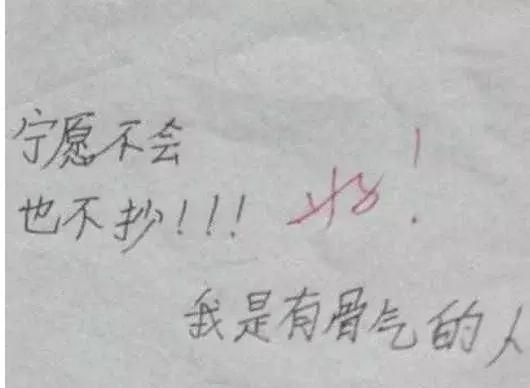 宁愿不会
也不抄!!! 好!
我是有骨气的人